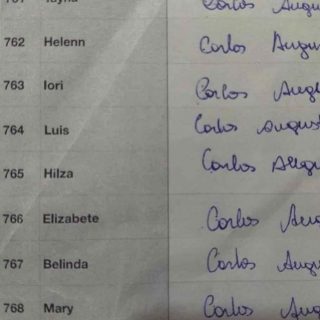 Carlos Augu
762 Helenn Carlos Augus
763 Iori Carlos Aug
764 Luis Carlos August
765 Hilza Carlos Augus
766 Elizabete Carlos Aug
767 Belinda Carlos Augu
768 Mary Carlos Augu